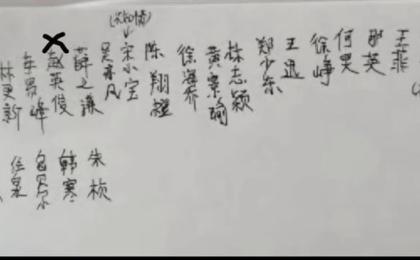 王菲
那英
何炅
徐峥
王迅
郑少东
林志颖
黄景瑜
徐海乔
陈翔
(不知情)
宋小宝
吴亦凡
薛之谦
赵英俊
林更新
朱桢
韩寒
任泉